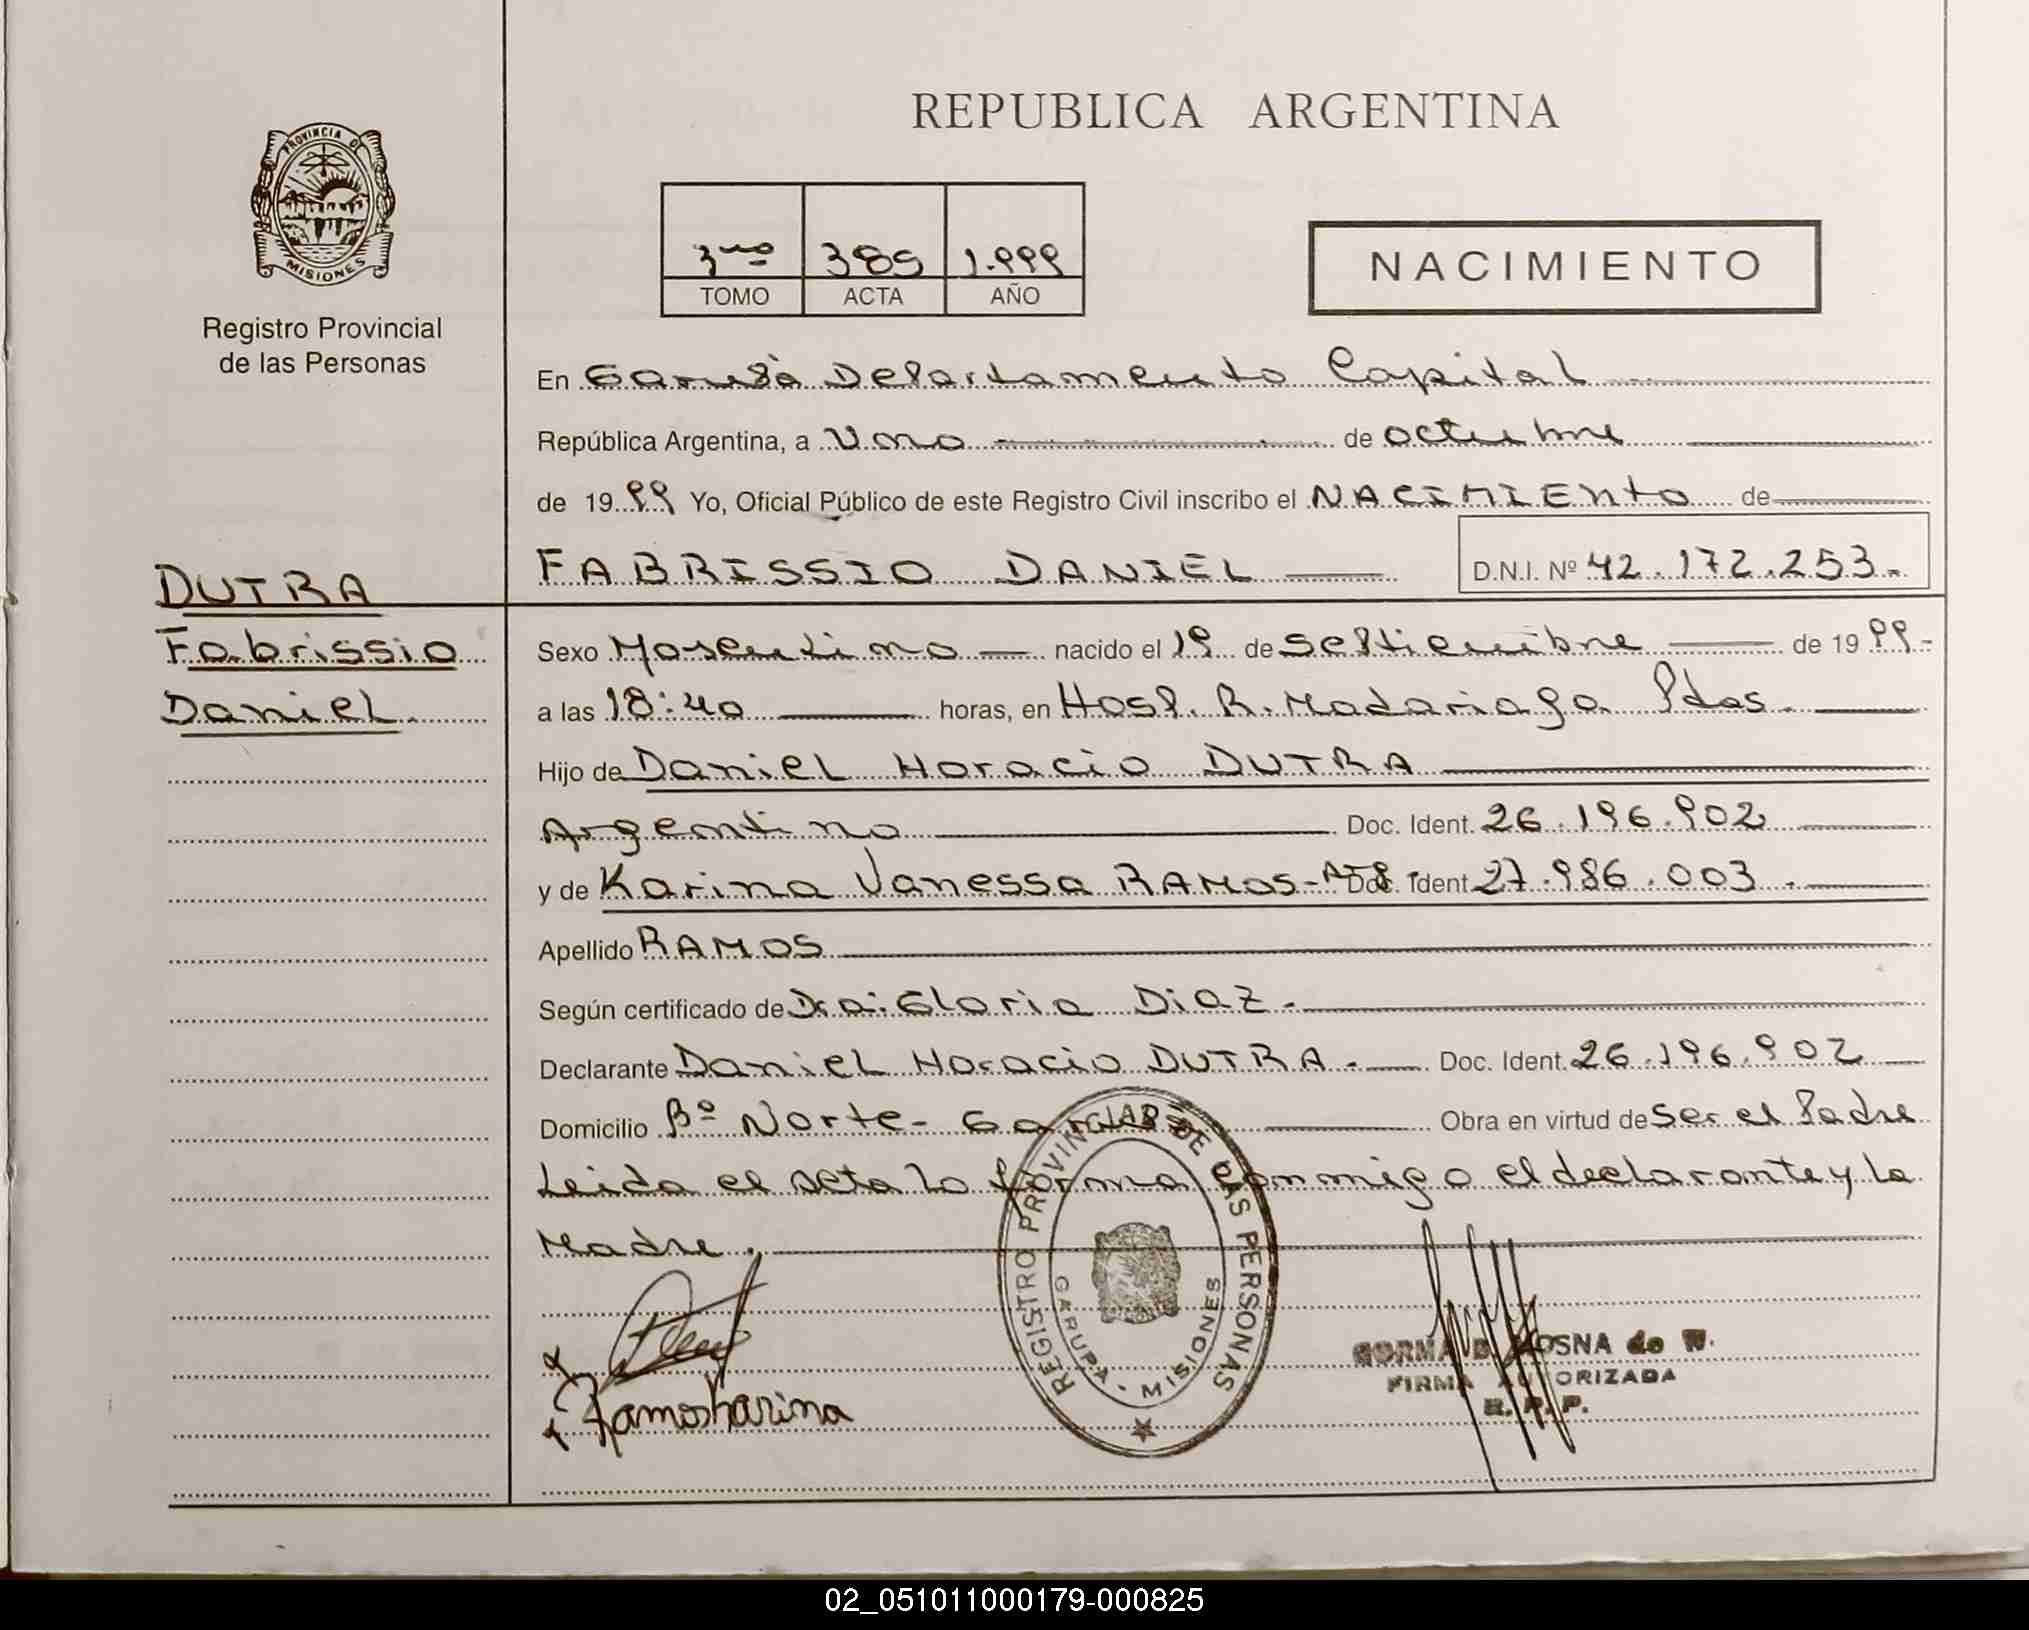 REPUBLICA ARGENTINA
PROVINCIA DE
MISIONES
Registro Provincial
de las Personas
3ro 385 1.999
TOMO ACTA AÑO
NACIMIENTO
En Garupá Departamento Capital
República Argentina, a Uno de octubre
de 1999 Yo, Oficial Público de este Registro Civil inscribo el NACIMIENTO de
FABRISSIO DANIEL D.N.I. Nº 42.172.253.-
DUTRA
Fabrissio
Daniel.
Sexo Masculino nacido el 19 de Septiembre de 1999-
a las 18:40 horas, en Hosp. R. Madariaga Pdas.
Hijo de Daniel Horacio DUTRA
Argentino Doc. Ident. 26.196.902
y de Karina Vanessa RAMOS- Doc. Ident 27.986.003.
Apellido RAMOS
Según certificado de Dra: Gloria Diaz.
Declarante Daniel Horacio DUTRA.- Doc. Ident. 26.196.902
Domicilio Bº Norte- Obra en virtud de Ser el Padre
Leida el acta la firma conmigo el declarante y la
Madre.
Ramos karina
REGISTRO PROVINCIAL DE LAS PERSONAS
GARUPA - MISIONES
NORMA B. de W.
FIRMA AUTORIZADA
R. P. P.
02_051011000179-000825